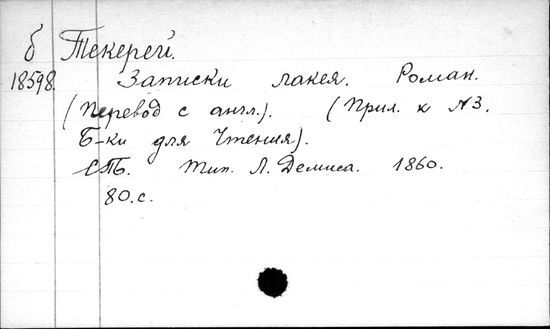 б Текерей.
18598. Записки лакея. Роман.
(Перевод с англ.). (Прил. к №3.
Б-ки для Чтения).
СПб. Тип. Л. Демиса. 1860.
80.с.